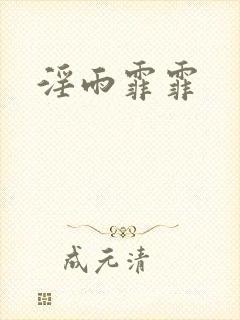 淫雨霏霏
成元清